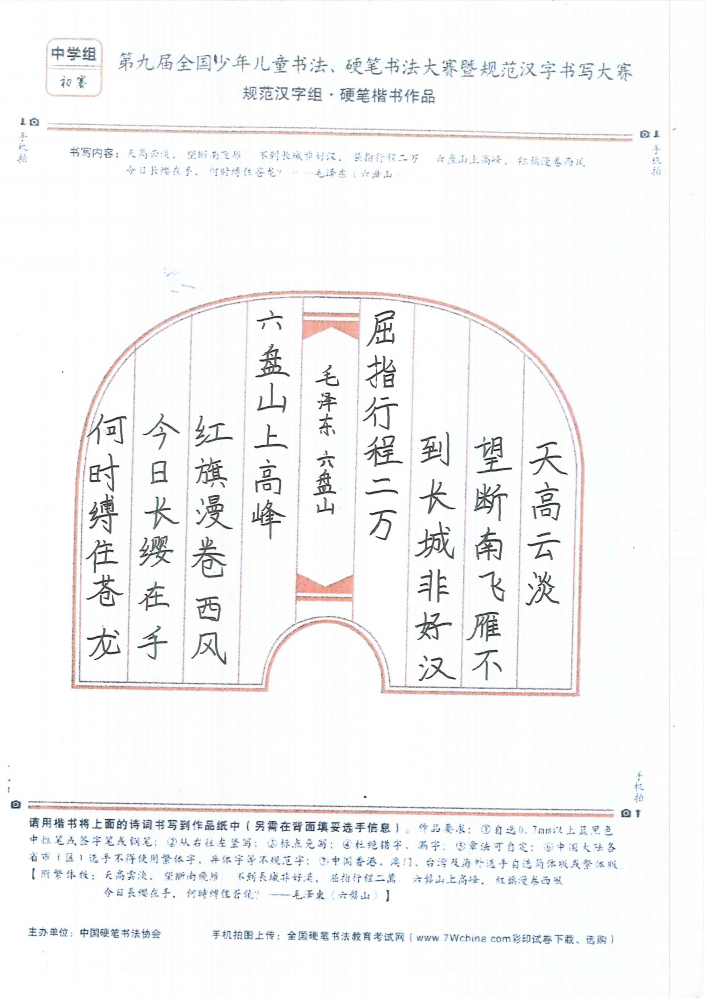 中学组
初赛
第九届全国少年儿童书法、硬笔书法大赛暨规范汉字书写大赛
规范汉字组·硬笔楷书作品
手机拍
手机拍
书写内容：天高云淡，望断南飞雁 不到长城非好汉，屈指行程二万 六盘山上高峰，红旗漫卷西风
今日长缨在手，何时缚住苍龙？——毛泽东《六盘山》
天高云淡
望断南飞雁不
到长城非好汉
屈指行程二万
毛泽东 六盘山
六盘山上高峰
红旗漫卷西风
今日长缨在手
何时缚住苍龙
手机拍
请用楷书将上面的诗词书写到作品纸中（另需在背面填妥选手信息）。作品要求：①自选0.7mm以上蓝黑色
中性笔或签字笔或钢笔；②从右往左竖写；③标点免写；④杜绝错字、漏字；⑤章法可自定；⑥中国大陆各
省市（区）选手不得使用繁体字、异体字等不规范字；⑦中国香港、澳门、台湾及海外选手自选简体版或繁体版
【附繁体版：天高雲淡，望斷南飛雁 不到長城非好漢，屈指行程二萬 六盤山上高峰，紅旗漫卷西風
今日長纓在手，何時縛住蒼龍？——毛澤東《六盤山》】
主办单位：中国硬笔书法协会
手机拍图上传：全国硬笔书法教育考试网（www.7Wchina.com彩印试卷下载、选购）